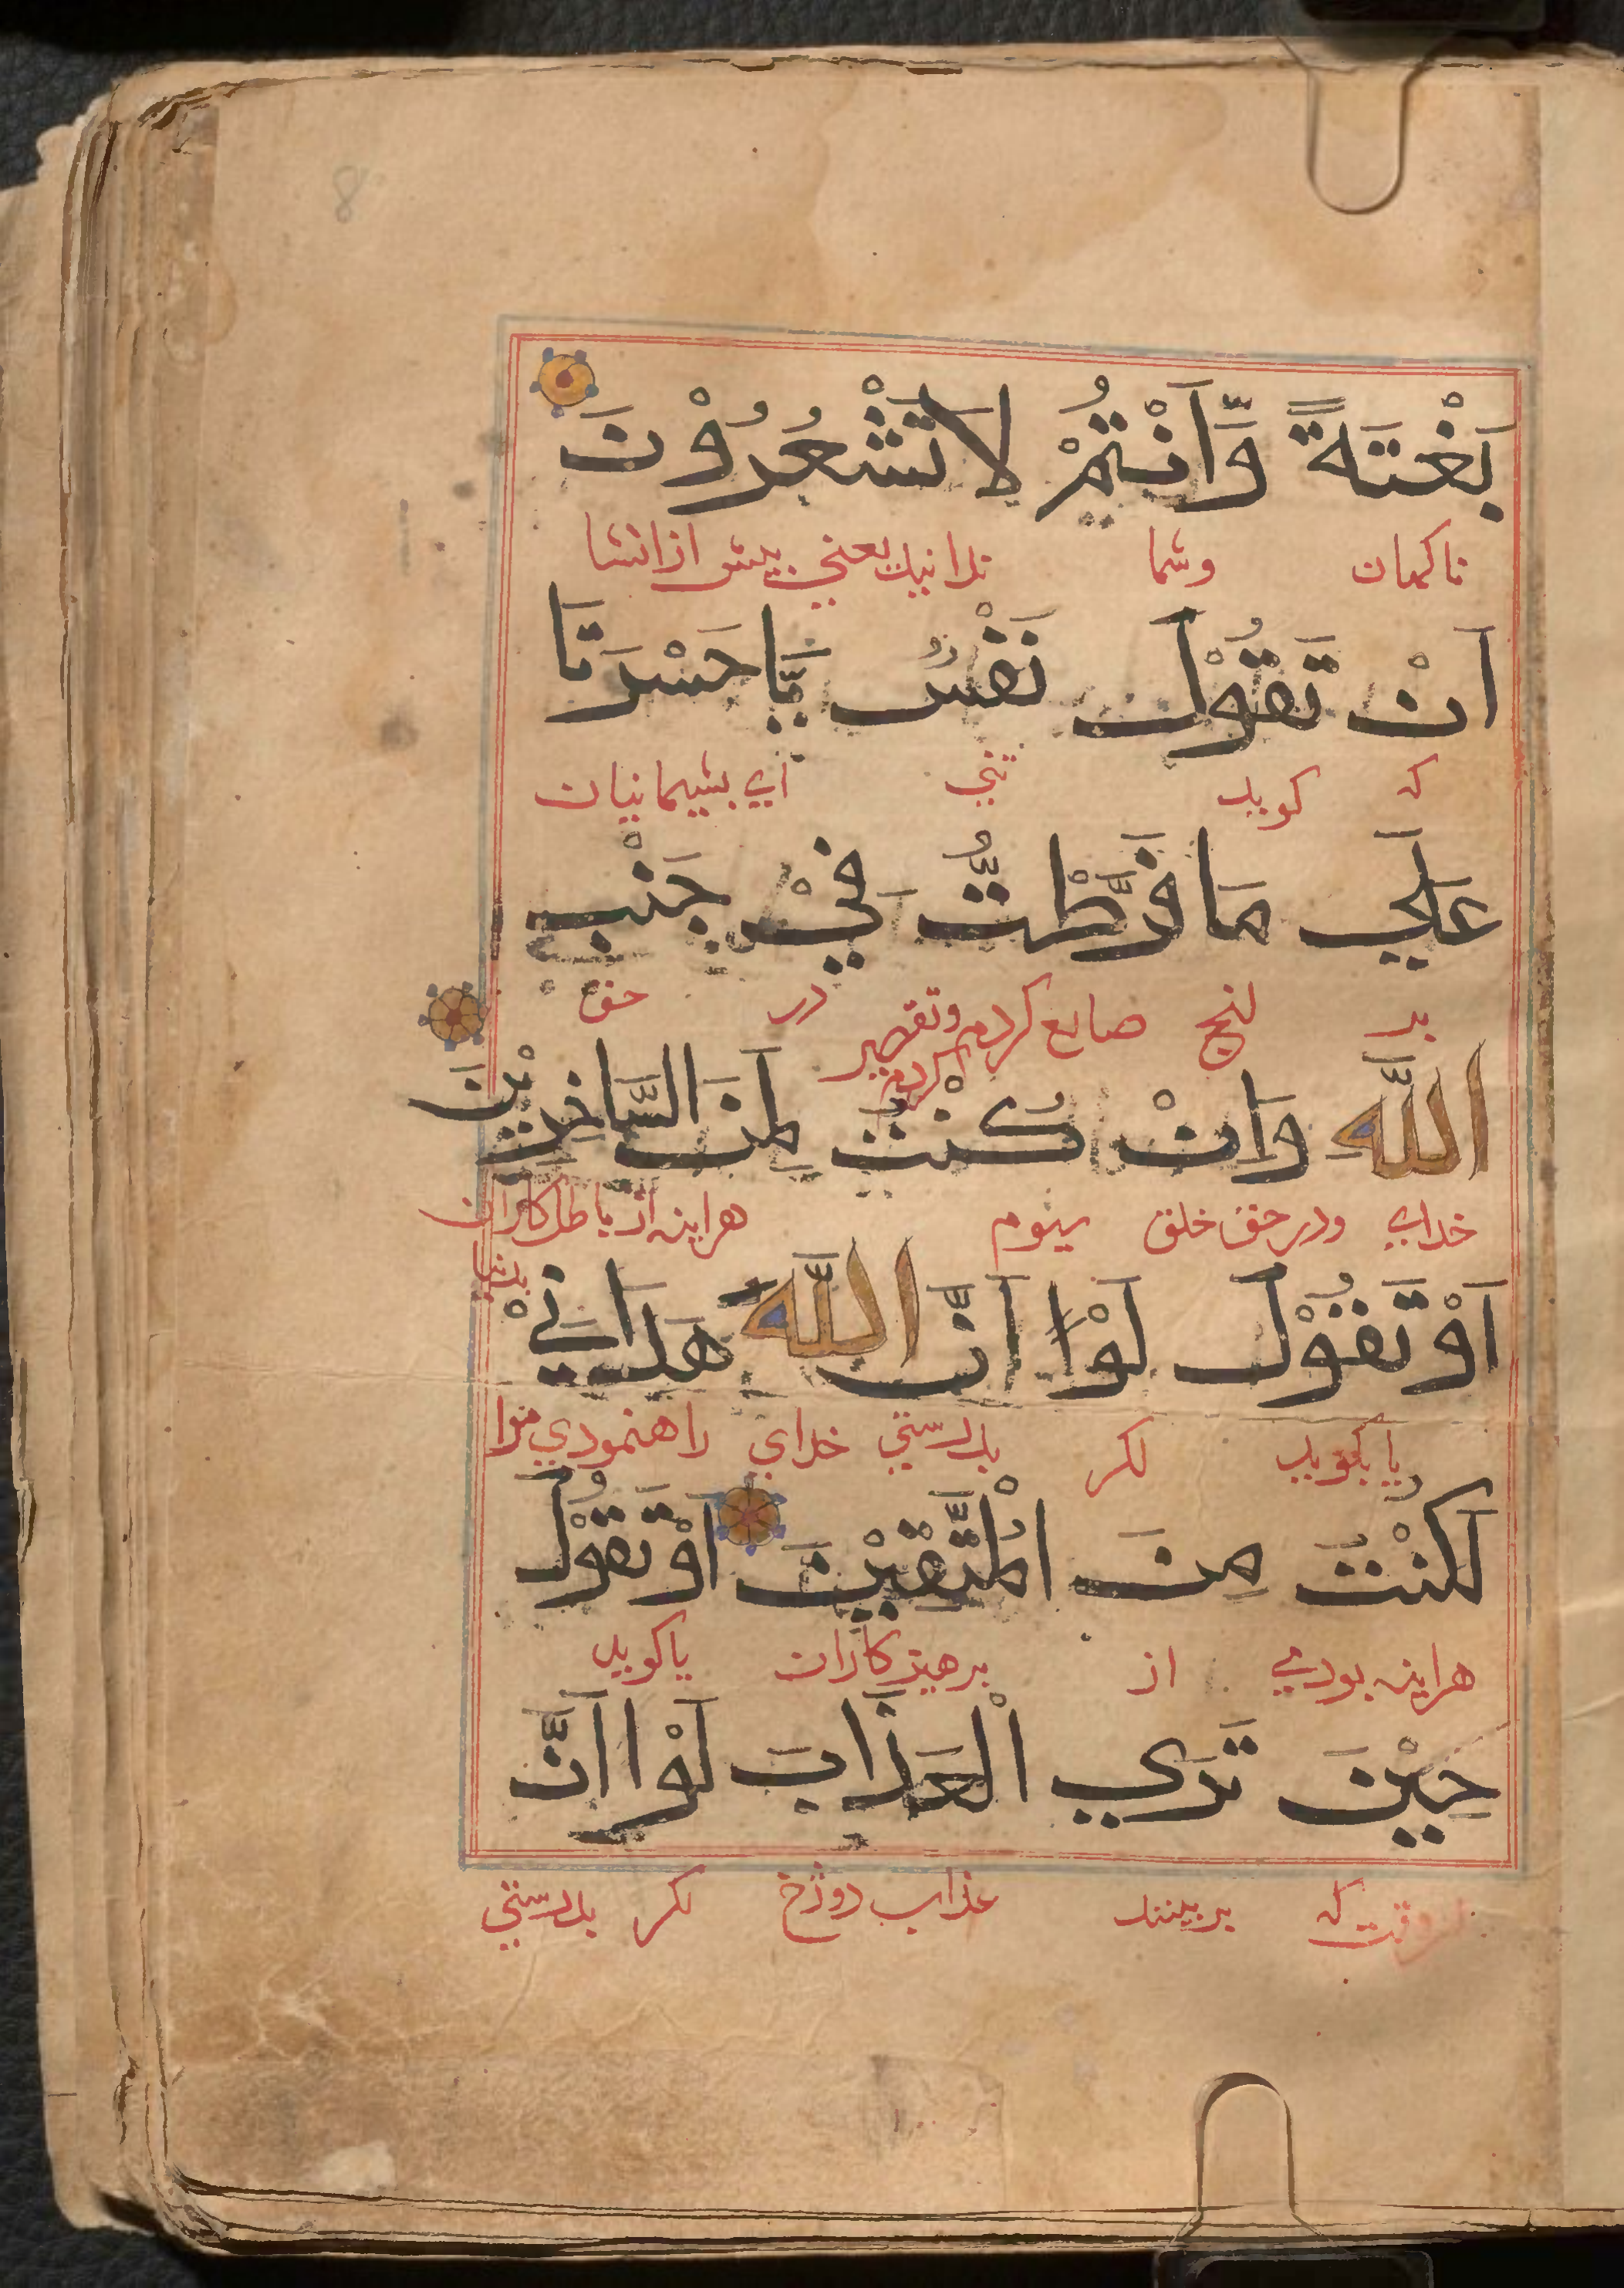 8
بَغْتَةً وَّاَنْتُمْ لَا تَشْعُرُوْنَ
ناكهان وشما ندانيد يعني پيش ازانشا
اَنْ تَقُوْلَ نَفْسٌ يَّا حَسْرَتَا
كه كويد تني اي پشيمانيان
عَلَي مَا فَرَّطْتُّ فِيْ جَنْبِ
بر انچ ضايع كردم وتقصير كردم در حق
اللَّهِ وَاِنْ كُنْتُ لَمِنَ السَّاخِرِيْنَ
خداي ودر حق خلق هراينه از باطل كاران بدنيا
اَوْ تَقُوْلَ لَوْا اَنَّ اللَّهَ هَدَانِيْ
يا بگويد اكر بدرستي خداي راهنمودي مرا
لَكُنْتُ مِنَ الْمُتَّقِيْنَ اَوْ تَقُوْلَ
هراينه بودمي از پرهيزكاران يا كويد
حِيْنَ تَرَي الْعَذَابَ لَوْا اَنَّ
وقت كه ببيند عذاب دوزخ اكر بدرستي